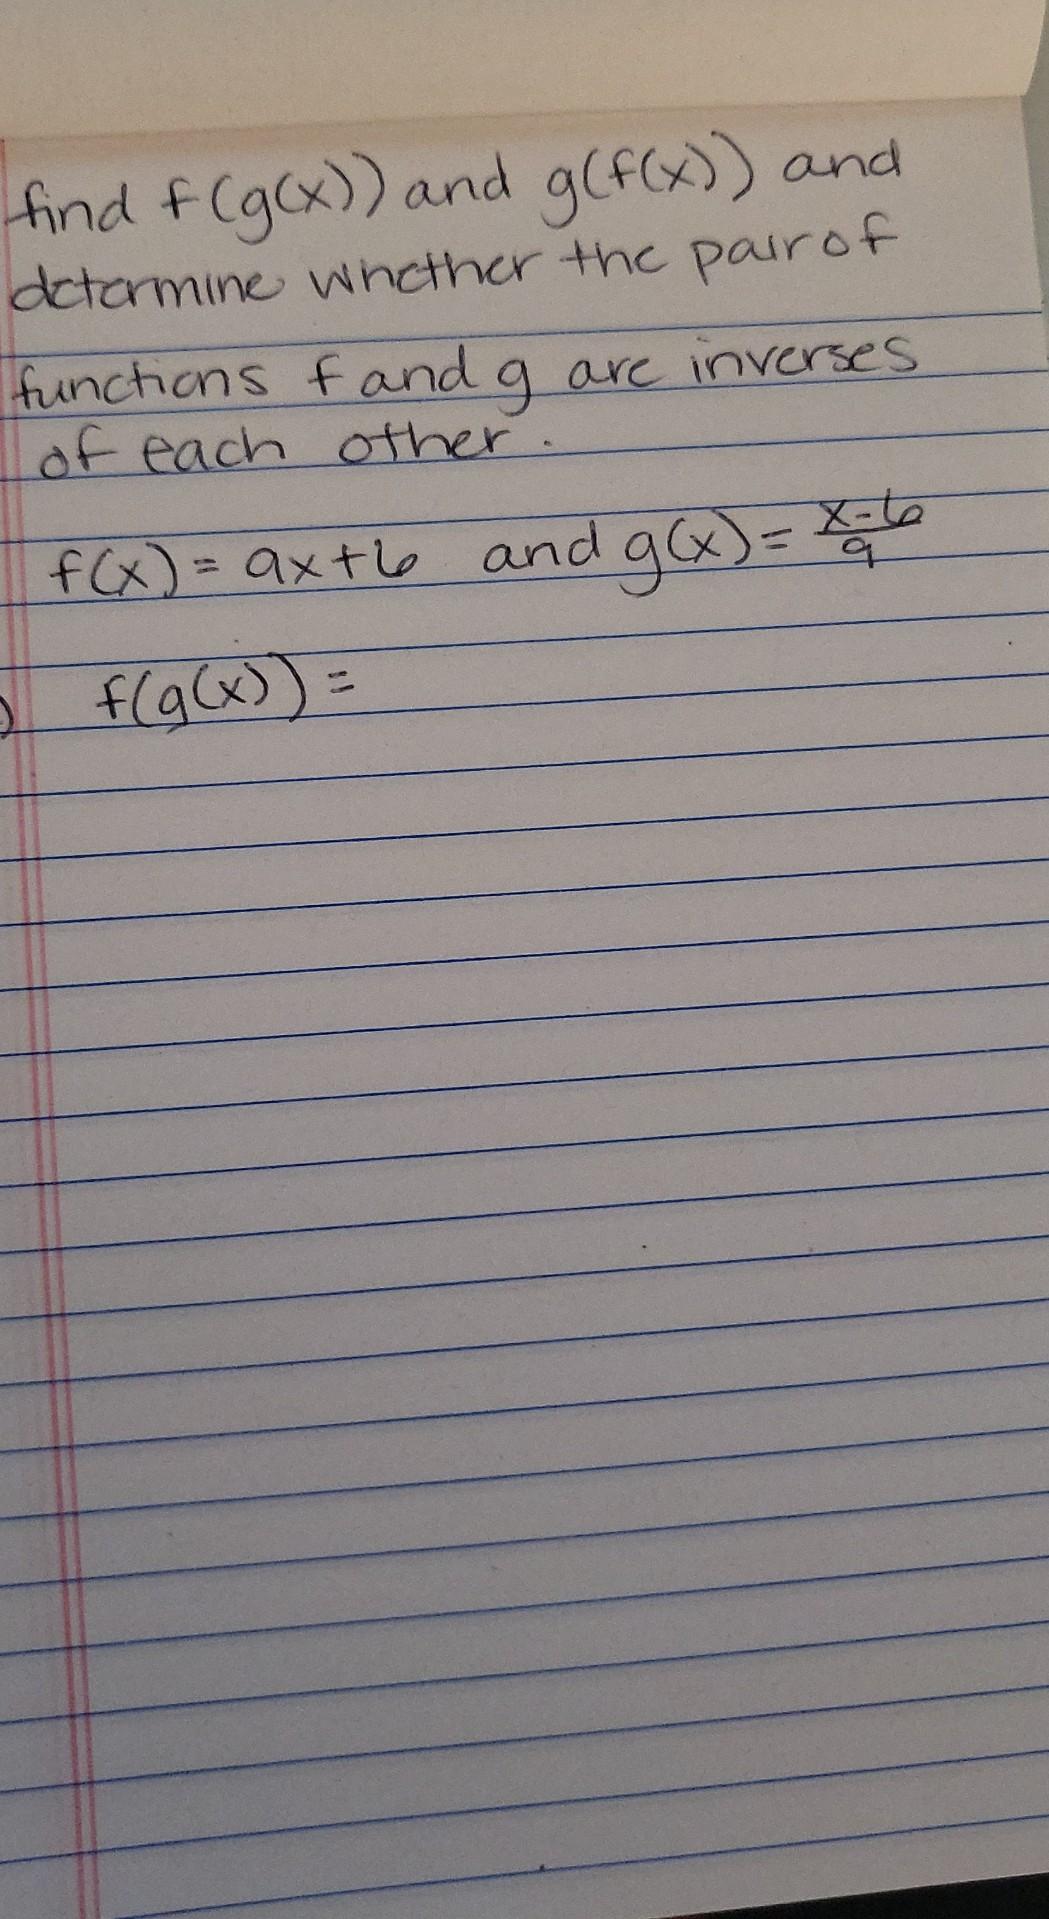 find f(g(x)) and g(f(x)) and
determine whether the pair of
functions f and g are inverses
of each other.
f(x) = 9x+6 and g(x) = \frac{x-6}{9}
) f(g(x)) =